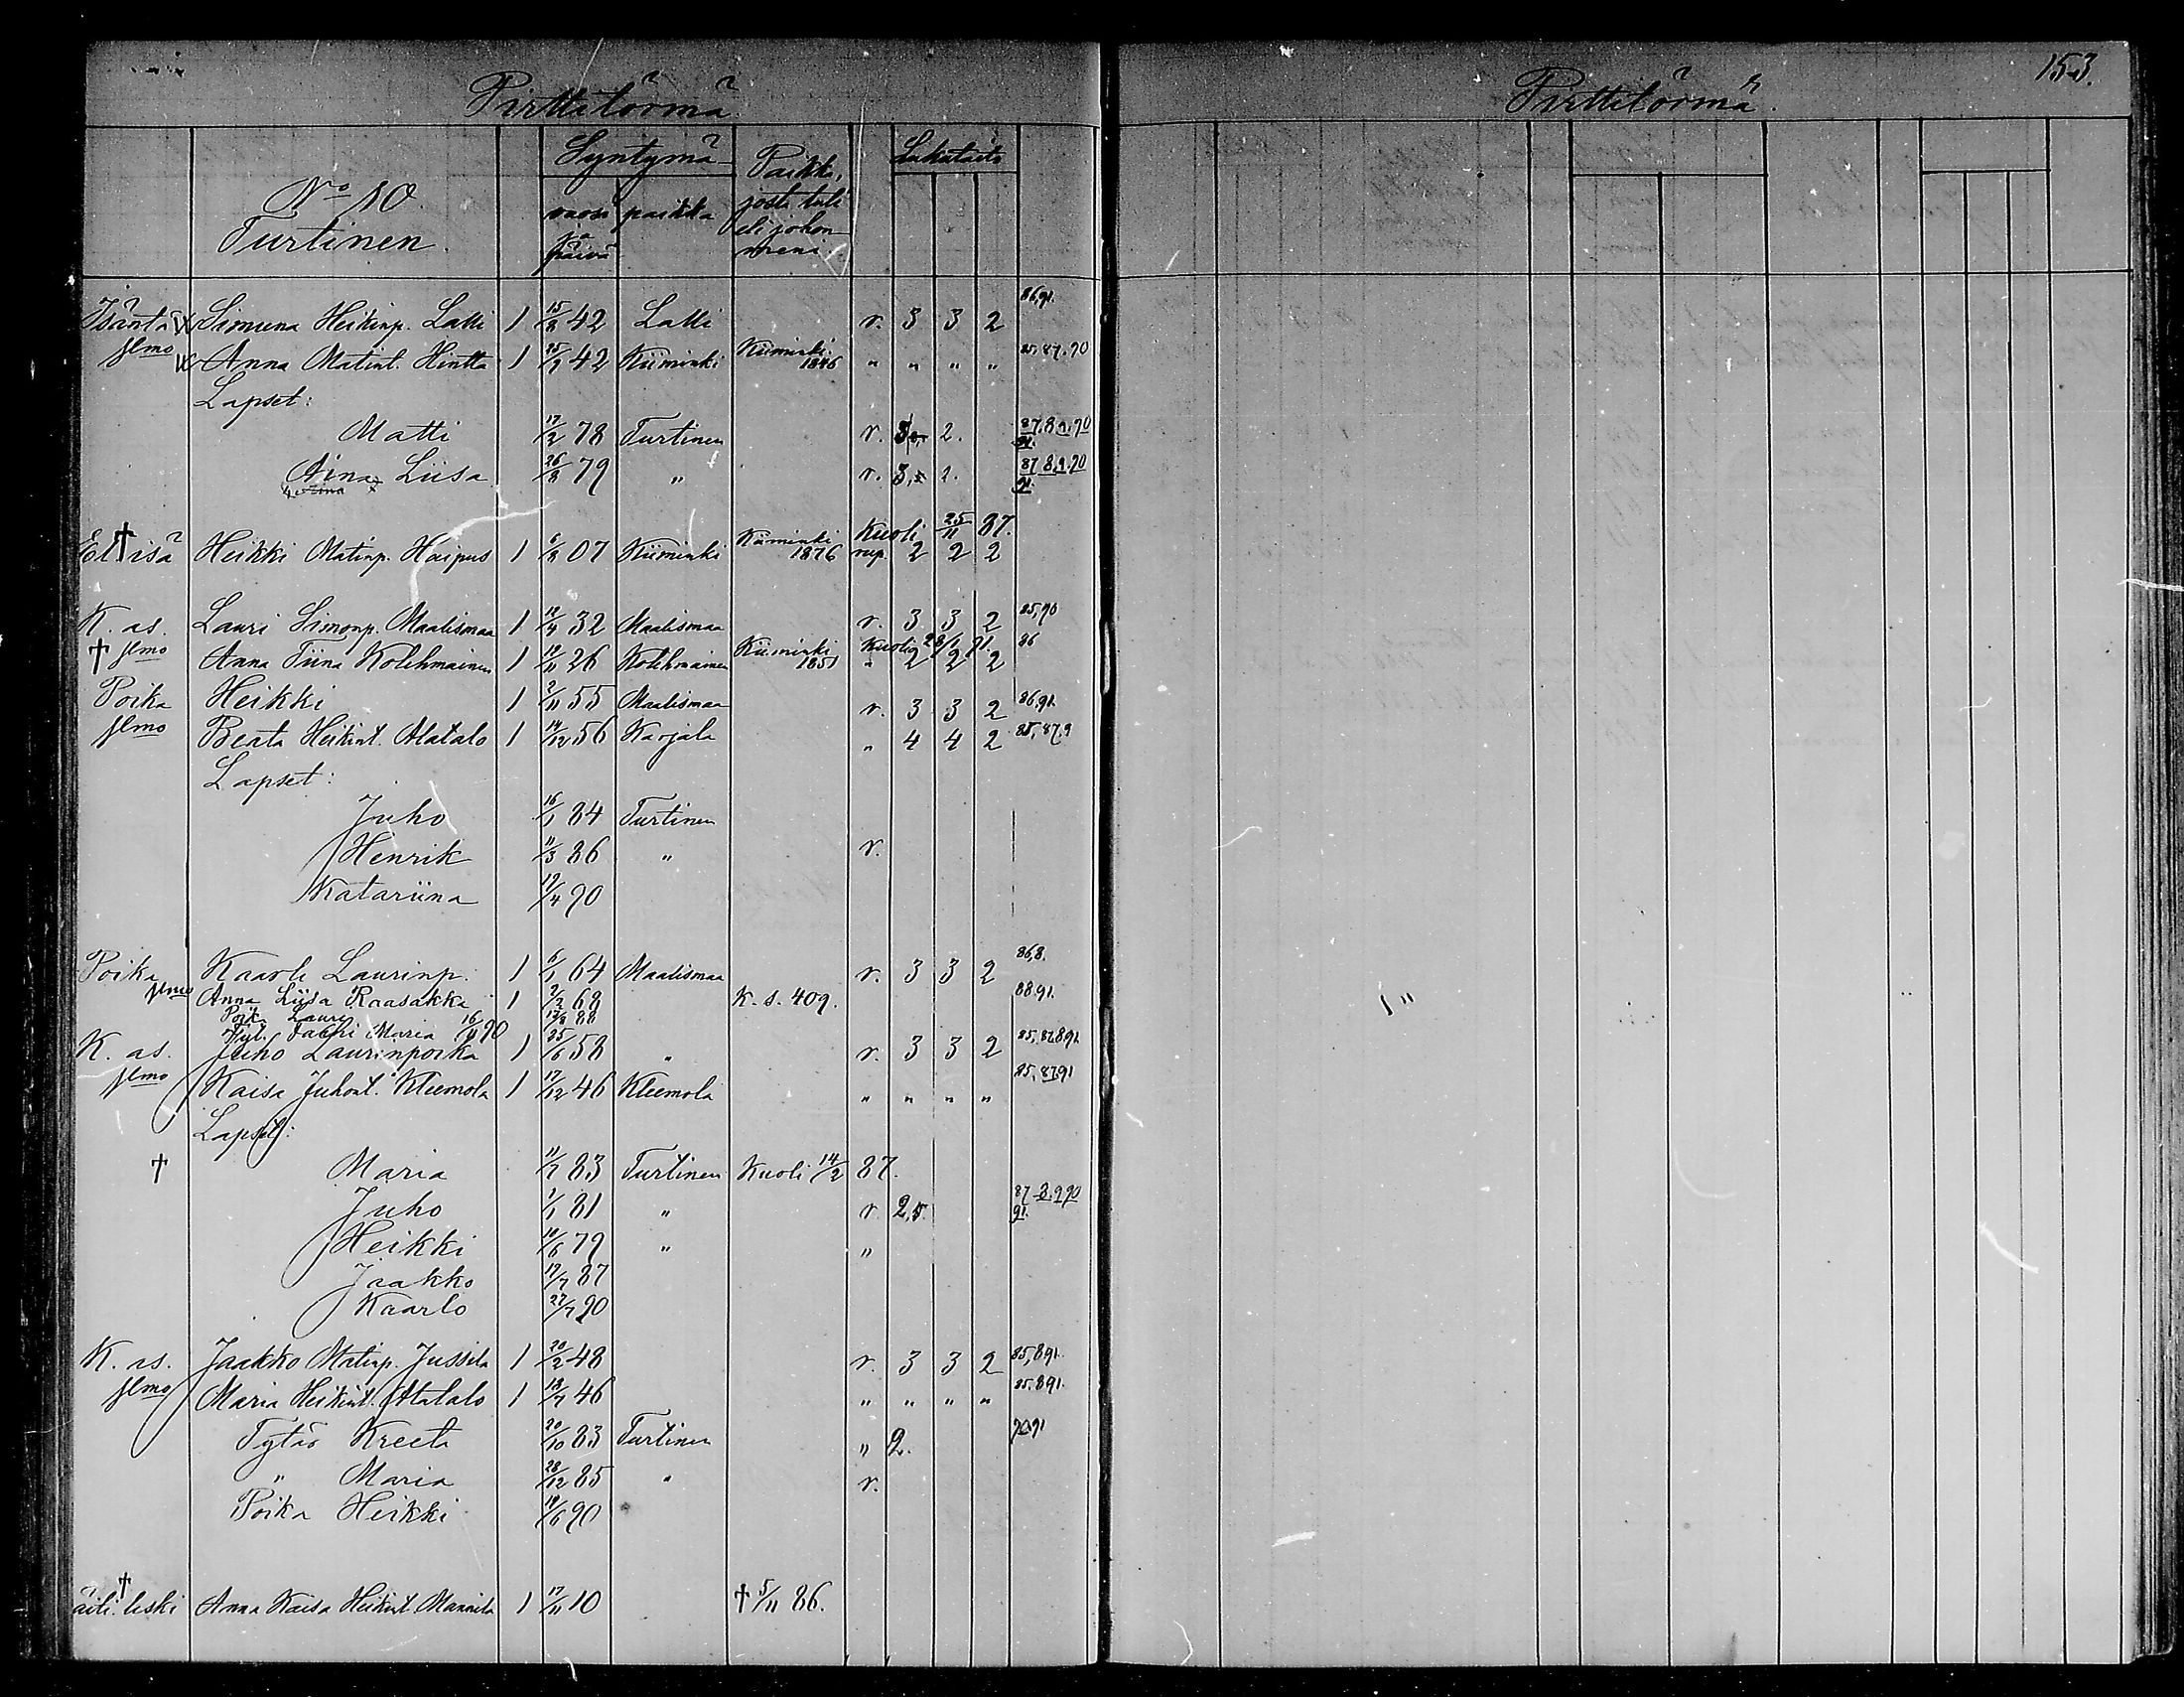 Pirttitörmä
Pirttitörmä.
153.
Syntymä
Paikka,
Lukutaito
No 10.
Turtinen.
vuosi ja päivä
paikka
josta tuli
eli johon
meni.
86,91.
Isäntä Simuna Heikinp. Lalli 1 15/8 42 Lalli r. 3 3 2
jlmo Anna Matint. Hintta 1 42 Kiiminki Kiiminki " " " " 85,87.90
Lapset:
Matti 17/2 78 Turtinen r. 2. 87,8.9.90
91.
Aina Liisa 26/8 79 " r. 3, 2. 87.8.9.90
91.
Kuoli 25/11 87.
Et. isä Heikki Matinp. Haipus 1 6/8 07 Kiiminki Kiiminki 1876 rup. 2 2 2
K. as. Lauri Simonp. Maalismaa 1 32 Maalismaa r. 3 3 2 85,90
† jlmo Anna Tiina Kolehmainen 1 26 Kolehmainen Kiiminki 1851 Kuoli 91. " 2 2 2 86
Poika Heikki 1 2/11 55 Maalismaa r. 3 3 2 86,91.
jlmo Beata Heikint. Alatalo 1 14/12 56 Karjala " 4 4 2 85,87,9
Lapset:
Juho 16/1 84 Turtinen
Henrik 11/3 86 " r.
Katariina 19/4 90
Poika Kaarle Laurinp. 1 6/1 64 Maalismaa r. 3 3 2 86,8.
jlmo Anna Liisa Raasakka 1 2/2 68 K. s. 409. 88.91.
Poik. Lauri 88
Tyt. Maria 16/11 90
K. as. Juho Laurinpoika 1 25/6 58 " r. 3 3 2 85,87.8.91.
jlmo Kaisa Juhont. Kleemola 1 17/12 46 Kleemola " " " " 85,87.91
Lapset:
† Maria 11/7 83 Turtinen Kuoli 14/2 87.
Juho 1/1 81 " r. 2, 87.8.9.90
91.
Heikki 10/6 79 " "
Jaakko 19/7 87
Kaarlo 27/7 90
K. as. Jaakko Matinp. Jussila 1 20/2 48 r. 3 3 2 85,8.91.
jlmo Maria Heikint. Alatalo 1 18/7 46 " " " " 85.8.91.
Tytär Kreeta 20/10 83 Turtinen " 2. 90.91
" Maria 28/12 85 " r.
Poika Heikki 19/6 90
† äiti. leski Anna Kaisa Heikint. Mannila 1 17/11 10 † 5/11 86.